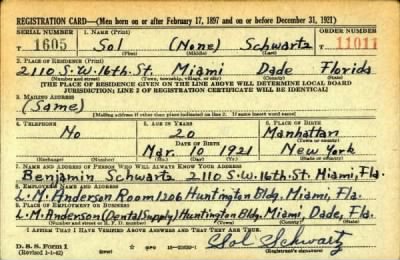 REGISTRATION CARD—(Men born on or after February 17, 1897 and on or before December 31, 1921)
SERIAL NUMBER 1. NAME (Print) ORDER NUMBER
T 1605 Sol (None) Schwartz T 11011
(First) (Middle) (Last)
2. PLACE OF RESIDENCE (Print)
2110 S.W. 16th. St. Miami Dade Florida
(Number and street) (Town, township, village, or city) (County) (State)
[THE PLACE OF RESIDENCE GIVEN ON THE LINE ABOVE WILL DETERMINE LOCAL BOARD
JURISDICTION; LINE 2 OF REGISTRATION CERTIFICATE WILL BE IDENTICAL]
3. MAILING ADDRESS
(Same)
[Mailing address if other than place indicated on line 2. If same insert word same]
4. TELEPHONE 5. AGE IN YEARS 6. PLACE OF BIRTH
No 20 Manhattan
DATE OF BIRTH (Town or county)
Mar. 10 1921 New York
(Exchange) (Number) (Mo.) (Day) (Yr.) (State or country)
7. NAME AND ADDRESS OF PERSON WHO WILL ALWAYS KNOW YOUR ADDRESS
Benjamin Schwartz 2110 S.W. 16th St. Miami, Fla.
8. EMPLOYER'S NAME AND ADDRESS
L. M. Anderson Room 1206 Huntington Bldg. Miami, Fla.
9. PLACE OF EMPLOYMENT OR BUSINESS
L. M. Anderson (Dental Supply) Huntington Bldg. Miami, Dade, Fla.
(Number and street or R. F. D. number) (Town) (County) (State)
I AFFIRM THAT I HAVE VERIFIED ABOVE ANSWERS AND THAT THEY ARE TRUE.
D. S. S. Form 1
(Revised 1-1-42) (over) GPO Sol Schwartz
(Registrant's signature)